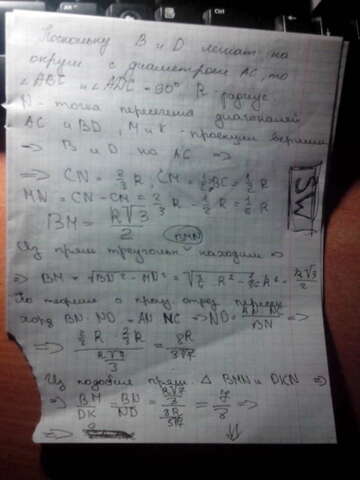 Поскольку B и D лежат на
окружн с диаметром AC, то
∠ABC и ∠ADC = 90° R - радиус
N - точка пересечения диагоналей
AC и BD, M и K - проекции вершин
⇒ B и D на AC ⇒
⇒ CN = 2/3 R, CM = 1/2 BC = 1/2 R
MN = CN - CM = 2/3 R - 1/2 R = 1/6 R
BM = R√3/2
SW
BMN
Из прям треугольн находим ⇒
⇒ BM = √BD² - MD² = R√3/2
По теореме о произ. отрез.
хорд BN · ND = AN · NC ⇒ ND = AN · NC / BN ⇒
⇒ = 8R/3√7
Из подобия прям. △ BMN и DKN ⇒
⇒ BM/DK = BN/ND = = 7/8 ⇒
⇒